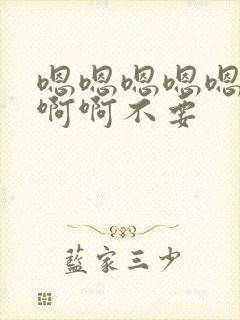 嗯嗯嗯嗯嗯
啊啊不要
藍家三少